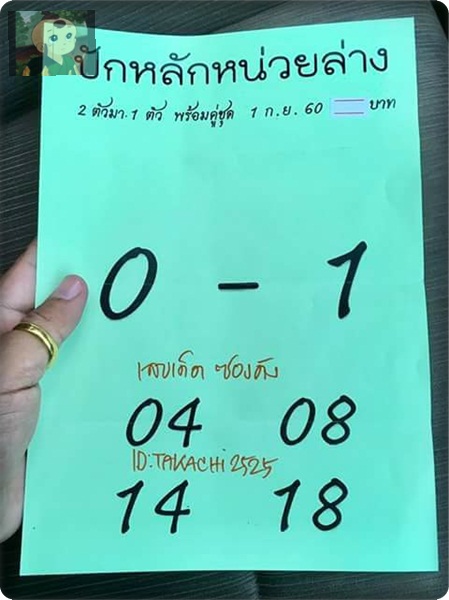 ปักหลักหน่วยล่าง
2 ตัวมา.1 ตัว พร้อมคู่ชุด 1 ก.ย. 60 บาท
0 - 1
เลขเด็ด ซองดัง
04 08
ID:TAKACHi2525
14 18